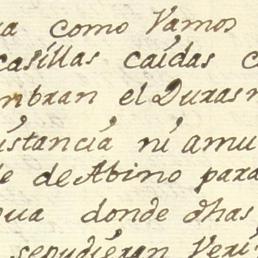 a como Vamos
casillas caidas c
mbran el Duras
istancia ni amu
e de Abino para
ua donde dhas
sepudieran Veri